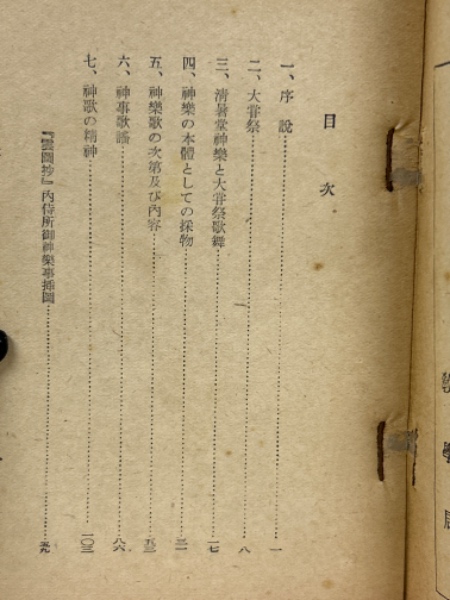 目次
一、序說……一
二、大嘗祭……八
三、淸暑堂神樂と大嘗祭歌舞……一七
四、神樂の本體としての採物……三一
五、神樂歌の次第及び內容……五三
六、神事歌謠……八六
七、神歌の精神……一〇三
『雲圖抄』內侍所御神樂事揷圖
敎學局